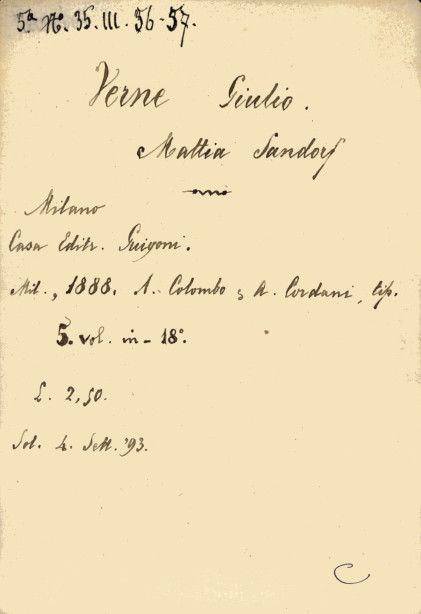 5ª N. 35. III. 56-57.
Verne Giulio.
Mattia Sandorf
Milano
Casa Editr. Guigoni.
Mil., 1888. A. Colombo e A. Cordani, tip.
5. vol. in-18°.
L. 2,50.
Sol. 4. Sett. '93.
C